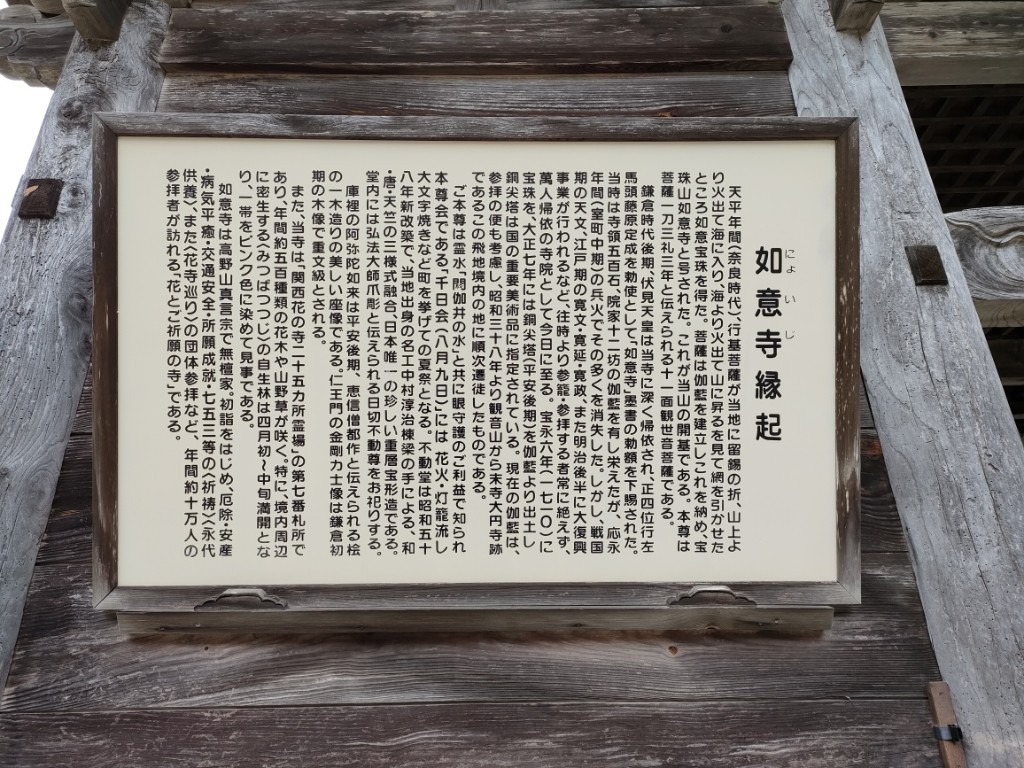 如意寺縁起
にょいじ
天平年間(奈良時代)、行基菩薩が当地に留錫の折、山上よ
り火出て海に入り、海より火出て山に昇るを見て網を引かせた
ところ如意宝珠を得た。菩薩は伽藍を建立しこれを納め、宝
珠山如意寺と号された。これが当山の開基である。本尊は
菩薩一刀三礼三年と伝えられる十一面観世音菩薩である。
鎌倉時代後期、伏見天皇は当寺に深く帰依され、正四位行左
馬頭藤原定成を勅使として、如意寺墨書の勅額を下賜された。
当時は寺領五百石、院家十二坊の伽藍を有し栄えたが、応永
年間(室町中期)の兵火でその多くを消失した。しかし、戦国
期の天文、江戸期の寛文・寛延・寛政、また明治後半に大復興
事業が行われるなど、往時より参籠・参拝する者常に絶えず、
萬人帰依の寺院として今日に至る。宝永六年(一七一〇)に
宝珠を、大正七年には銅尖塔(平安後期)を伽藍より出土し
銅尖塔は国の重要美術品に指定されている。現在の伽藍は、
参拝の便も考慮し昭和三十八年より観音山から末寺大円寺跡
であるこの飛地境内の地に順次遷徒したものである。
ご本尊は霊水「閼伽井の水」と共に眼守護のご利益で知られ
本尊会である「千日会(八月九日)」には 花火・灯籠流し
大文字焼きなど町を挙げての夏祭となる。不動堂は昭和五十
八年新改築で、当地出身の名工中村淳治棟梁の手による、和
・唐・天竺の三様式融合、日本唯一の珍しい重層宝形造である。
堂内には弘法大師爪彫と伝えられる日切不動尊をお祀りする。
庫裡の阿弥陀如来は平安後期、恵信僧都作と伝えられる桧
の一木造りの美しい座像である。仁王門の金剛力士像は鎌倉初
期の木像で重文級とされる。
また、当寺は、「関西花の寺二十五カ所霊場」の第七番札所で
あり、年間約五百種類の花木や山野草が咲く。特に、境内周辺
に密生する〈みつばつつじ〉の自生林は四月初〜中旬満開とな
り、一帯をピンク色に染めて見事である。
如意寺は高野山真言宗で無檀家。初詣をはじめ、厄除・安産
・病気平癒・交通安全・所願成就・七五三等の祈祷〉〈永代
供養〉、また〈花寺巡り〉の団体参拝など、年間約十万人の
参拝者が訪れる「花とご祈願の寺」である。